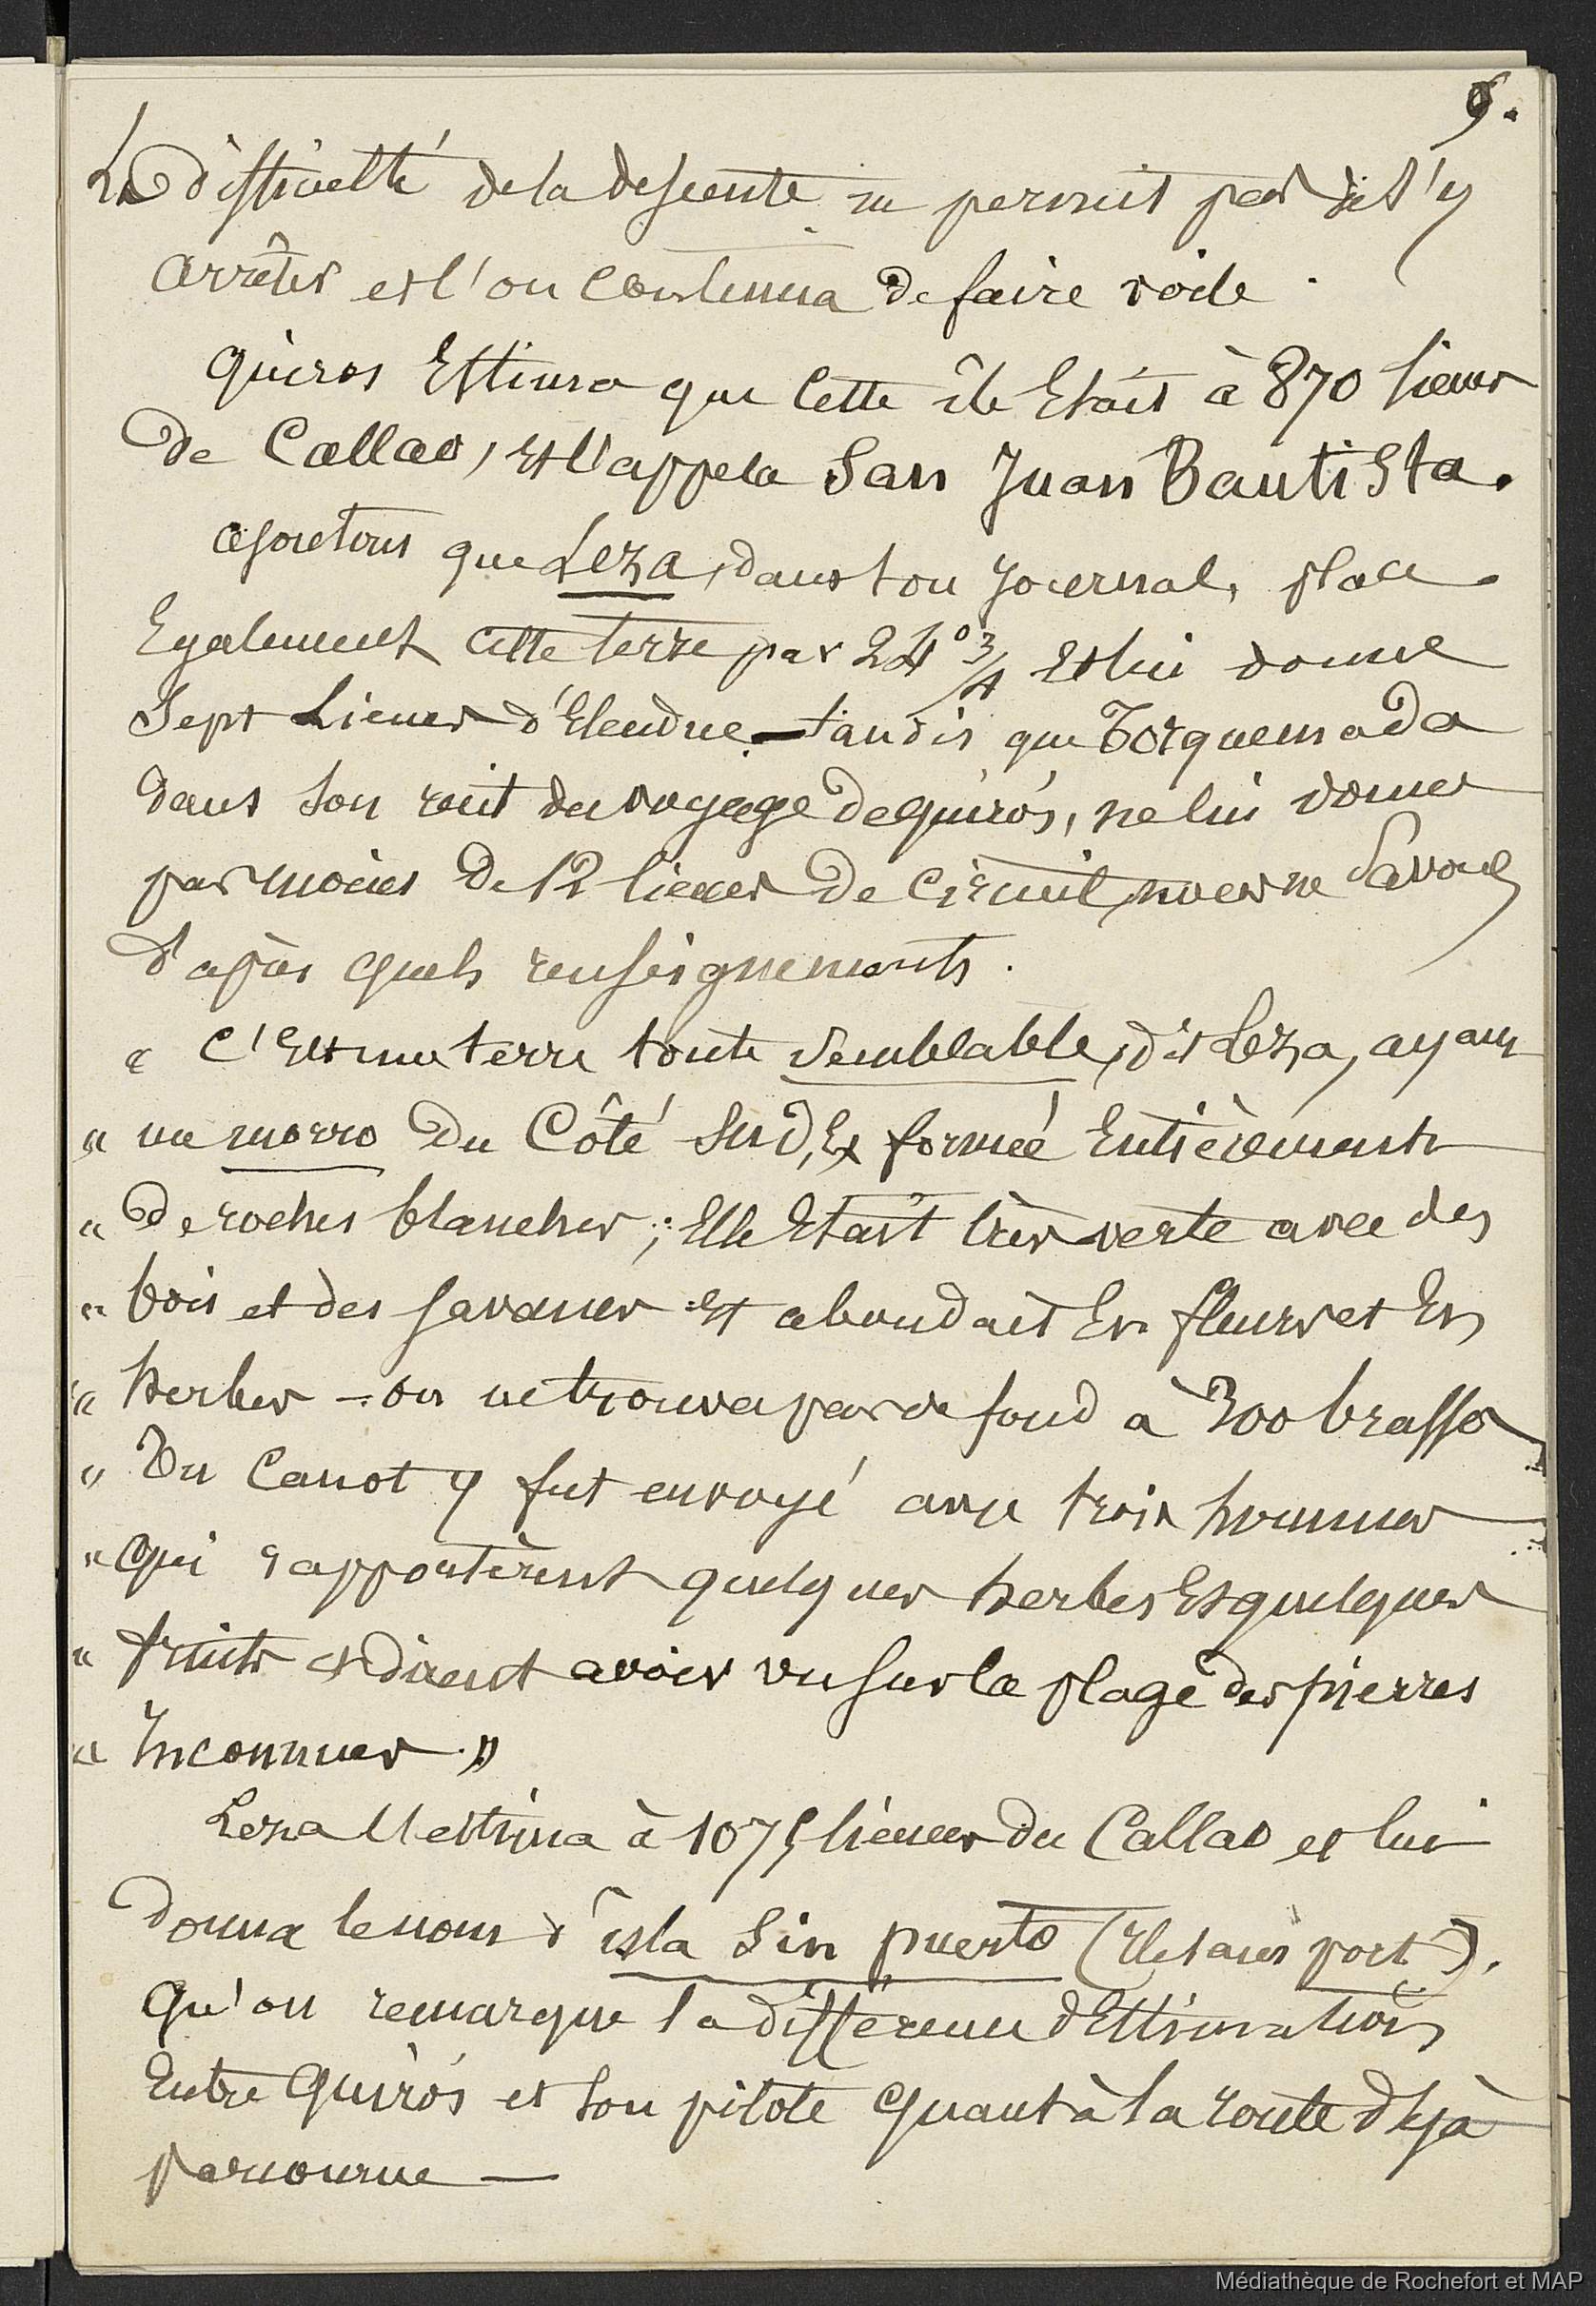 9.
La difficulté de la descente ne permit pas de s'y
arrêter et l'on continua de faire voile.
Quiros Estima que cette île Etait à 870 lieues
de Callao, et l'appela San Juan Bautista.
ajoutons que Leza, dans son journal, place
Egalement cette terre par 24° 3/4 et lui donne
Sept Lieues d'Etendue — tandis que Torquemada
dans son récit du voyage de Quirós, ne lui donne
pas moins de 12 lieues de circuit, nous ne savons
d'après quels renseignements.
« C'Est une terre toute semblable, dit Leza, ayant
« un morro du Côté Sud, Et formée Entièrement
« de roches blanches ; Elle Etait très verte avec des
« bois et des savanes et abondait En fleurs et En
« herbes — on ne trouva pas de fond à 300 brasses
« Un Canot y fut envoyé avec trois hommes
« qui rapportèrent quelques herbes Et quelques
« fruits et dirent avoir vu sur la plage des pierres
« Inconnues. »
Leza l'estima à 1075 lieues du Callao et lui
donna le nom d'isla Sin puerto (Ile sans port).
Qu'on remarque la différence d'Estimation
Entre Quirós et son pilote quant à la route déjà
parcourue —
Médiathèque de Rochefort et MAP